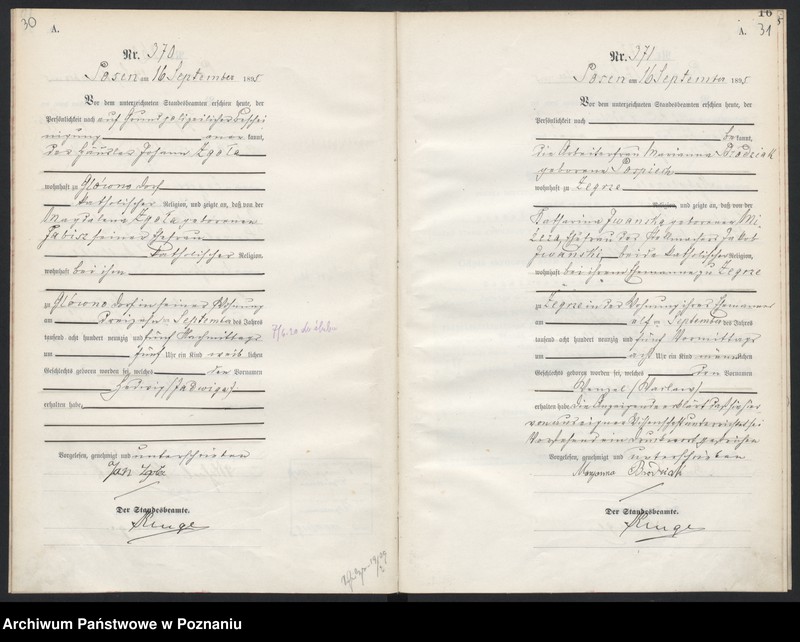 30
A.
Nr. 370
Posen am 16 September 1895
Vor dem unterzeichneten Standesbeamten erschien heute, der
Persönlichkeit nach auf Grund polizeilicher Beschei-
nigung aner kannt,
des Häusler Johann Zgoła
wohnhaft zu Glówno Dorf
katholischer Religion, und zeigte an, daß von der
Magdalena Zgoła geborenen
Jabisz seiner Ehefrau
katholischer Religion,
wohnhaft bei ihm
zu Glówno Dorf in seiner Wohnung
am dreizehn September des Jahres
tausend acht hundert neunzig und fünf Nachmittags
um fünf Uhr ein Kind weib lichen
Geschlechts geboren worden sei, welches den Vornamen
Hedwig (Jadwiga)
erhalten habe.
Vorgelesen, genehmigt und unterschrieben
Jan Zgoła
Der Standesbeamte.
Runge
16
A. 31
Nr. 371
Posen am 16 September 1895
Vor dem unterzeichneten Standesbeamten erschien heute, der
Persönlichkeit nach
be kannt,
die Arbeiterfrau Marianna Brodziak
geborene Pospiech
wohnhaft zu Zegrze
Religion, und zeigte an, daß von der
Katharina Iwanska geborener Mi-
Ehefrau des Stellmachers Jakob
Iwanski beide katholischer Religion,
wohnhaft bei ihrem Ehemanne zu Zegrze
zu Zegrze in der Wohnung ihres Ehemannes
am elf September des Jahres
tausend acht hundert neunzig und fünf Vormittags
um acht Uhr ein Kind männ lichen
Geschlechts geboren worden sei, welches den Vornamen
Wenzel (Wacław)
erhalten habe. Die Anzeigende erklärt daß sie hier-
von aus eigner Wissenschaft unterrichtet sei
Vorstehend ein Druckwort gestrichen
Vorgelesen, genehmigt und unterschrieben
Maryanna Brodziak
Der Standesbeamte.
Runge
Archiwum Państwowe w Poznaniu